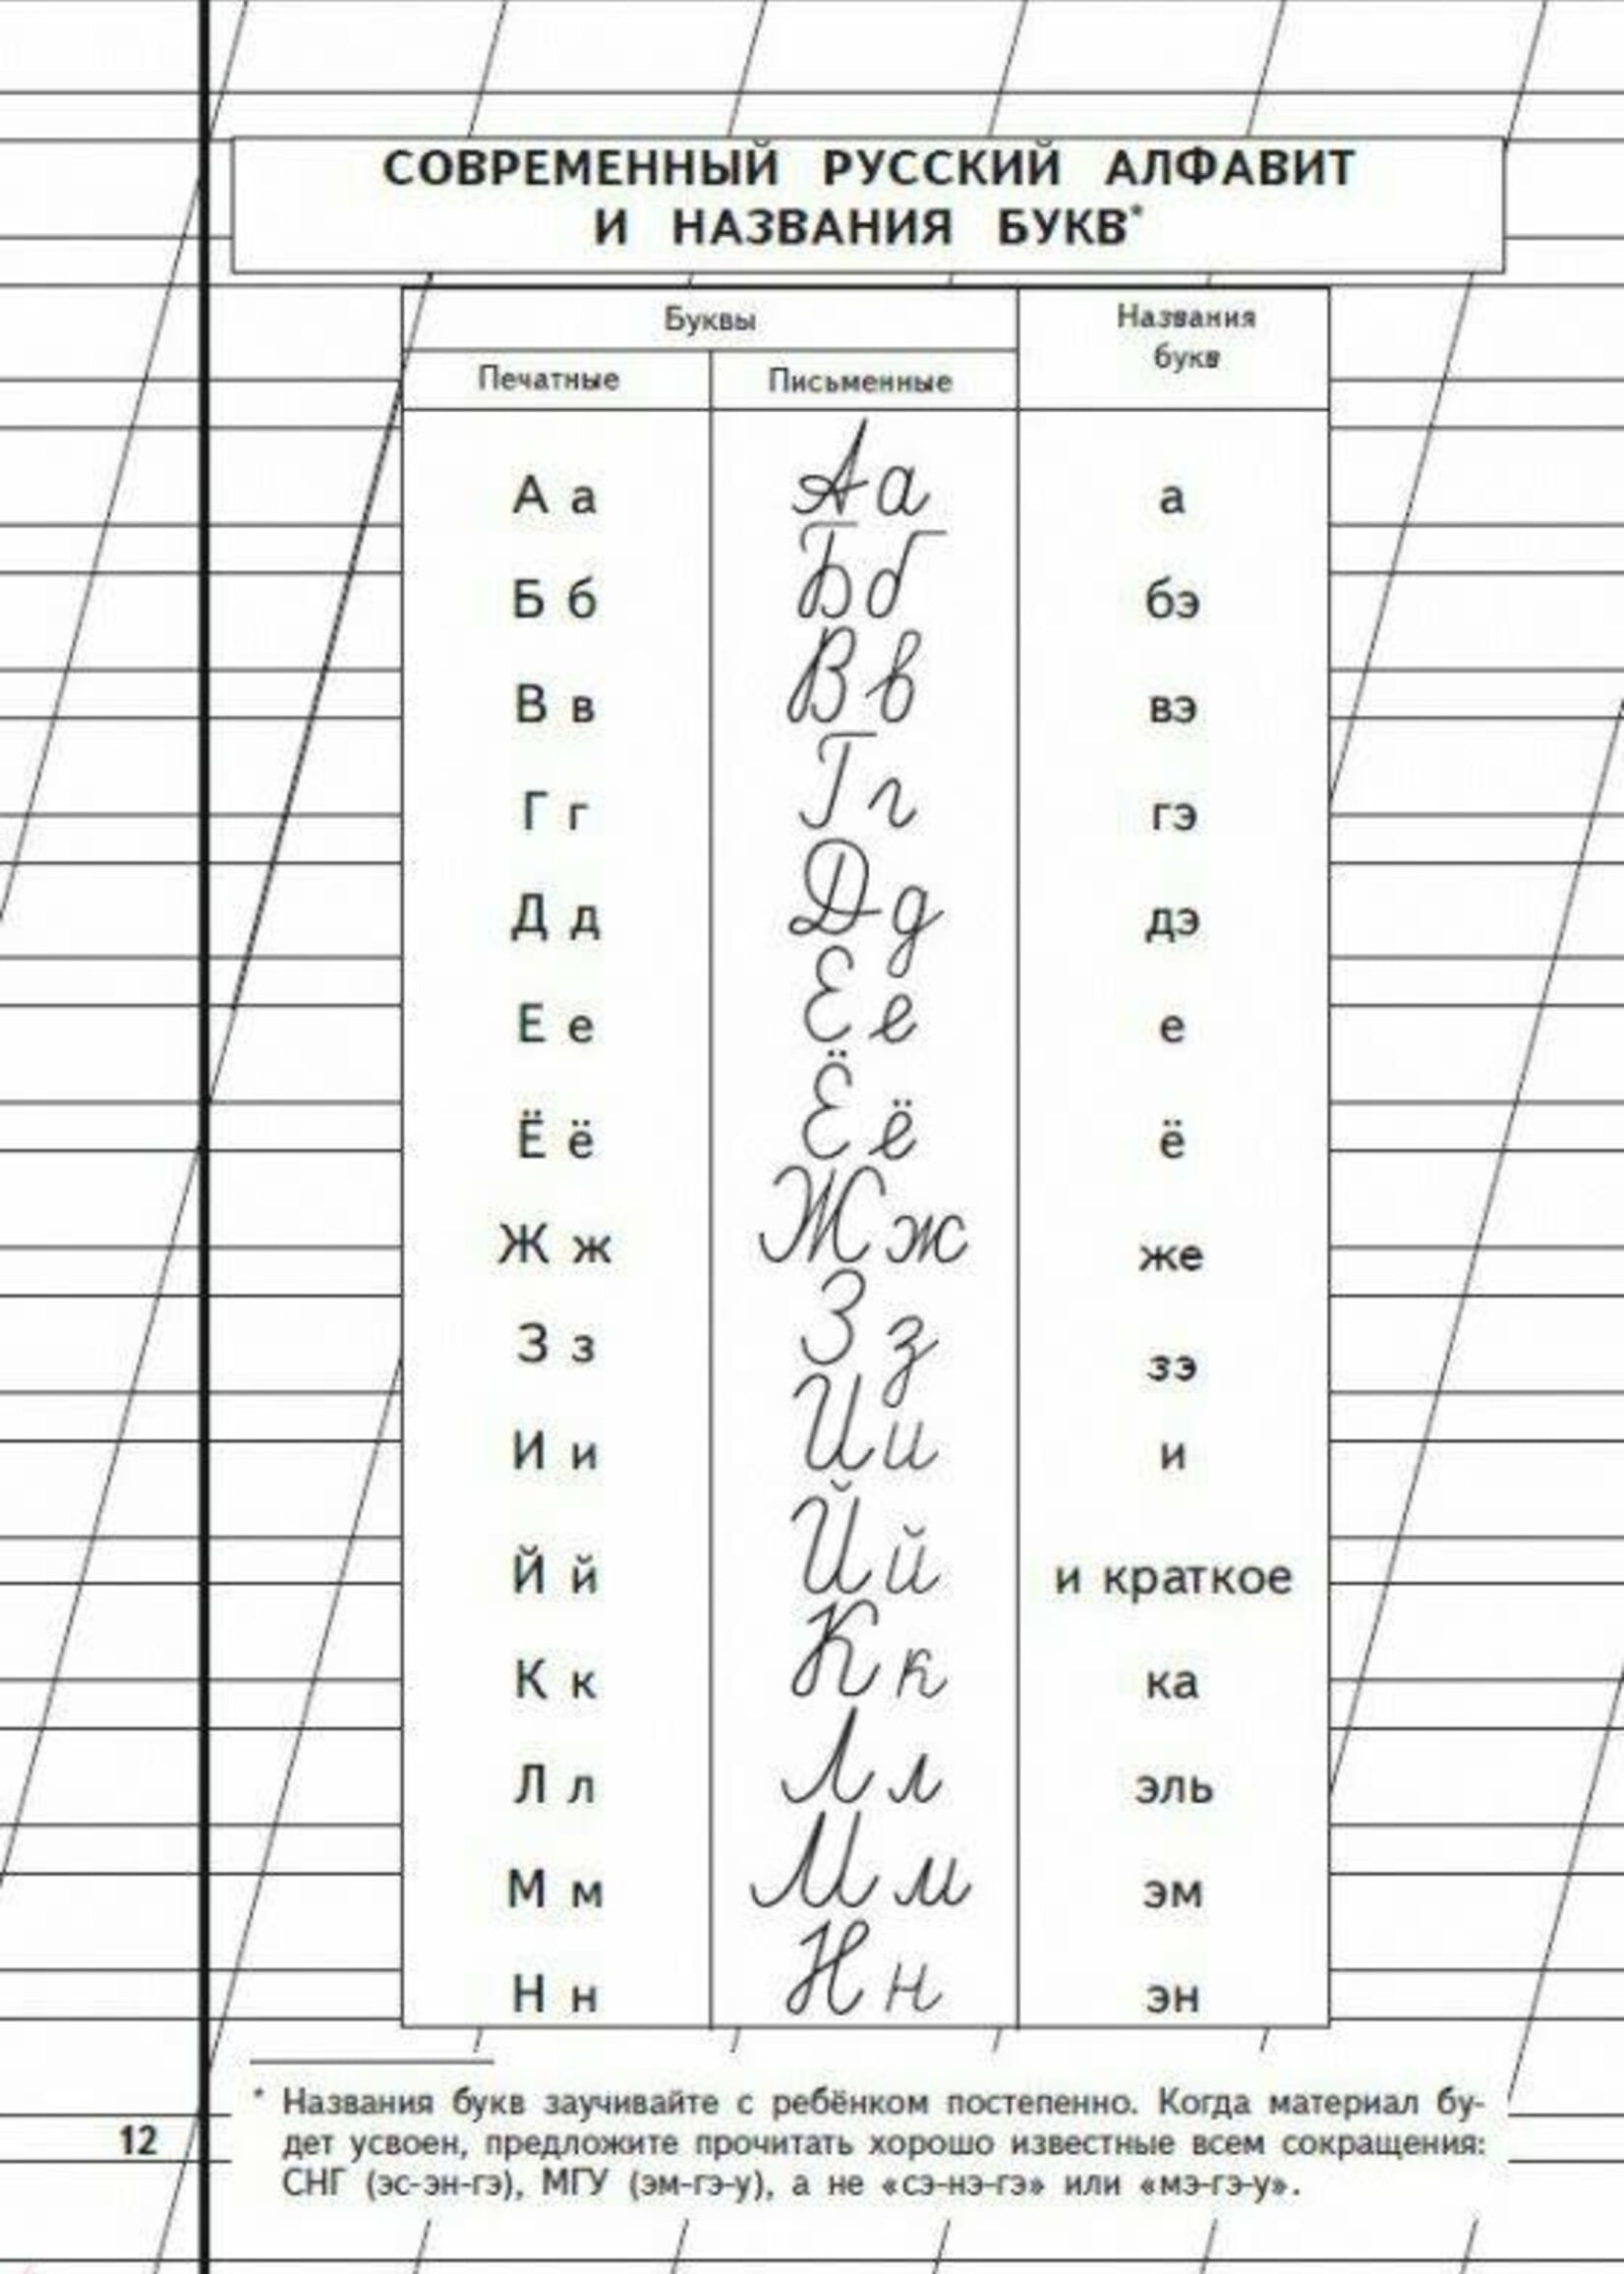 СОВРЕМЕННЫЙ РУССКИЙ АЛФАВИТ
И НАЗВАНИЯ БУКВ*
Буквы Названия букв
Печатные Письменные
А а Аа а
Б б Бб бэ
В в Вв вэ
Г г Гг гэ
Д д Дд дэ
Е е Ее е
Ё ё Ёё ё
Ж ж Жж же
З з Зз зэ
И и Ии и
Й й Йй и краткое
К к Кк ка
Л л Лл эль
М м Мм эм
Н н Нн эн
* Названия букв заучивайте с ребёнком постепенно. Когда материал бу-
дет усвоен, предложите прочитать хорошо известные всем сокращения:
СНГ (эс-эн-гэ), МГУ (эм-гэ-у), а не «сэ-нэ-гэ» или «мэ-гэ-у».
12